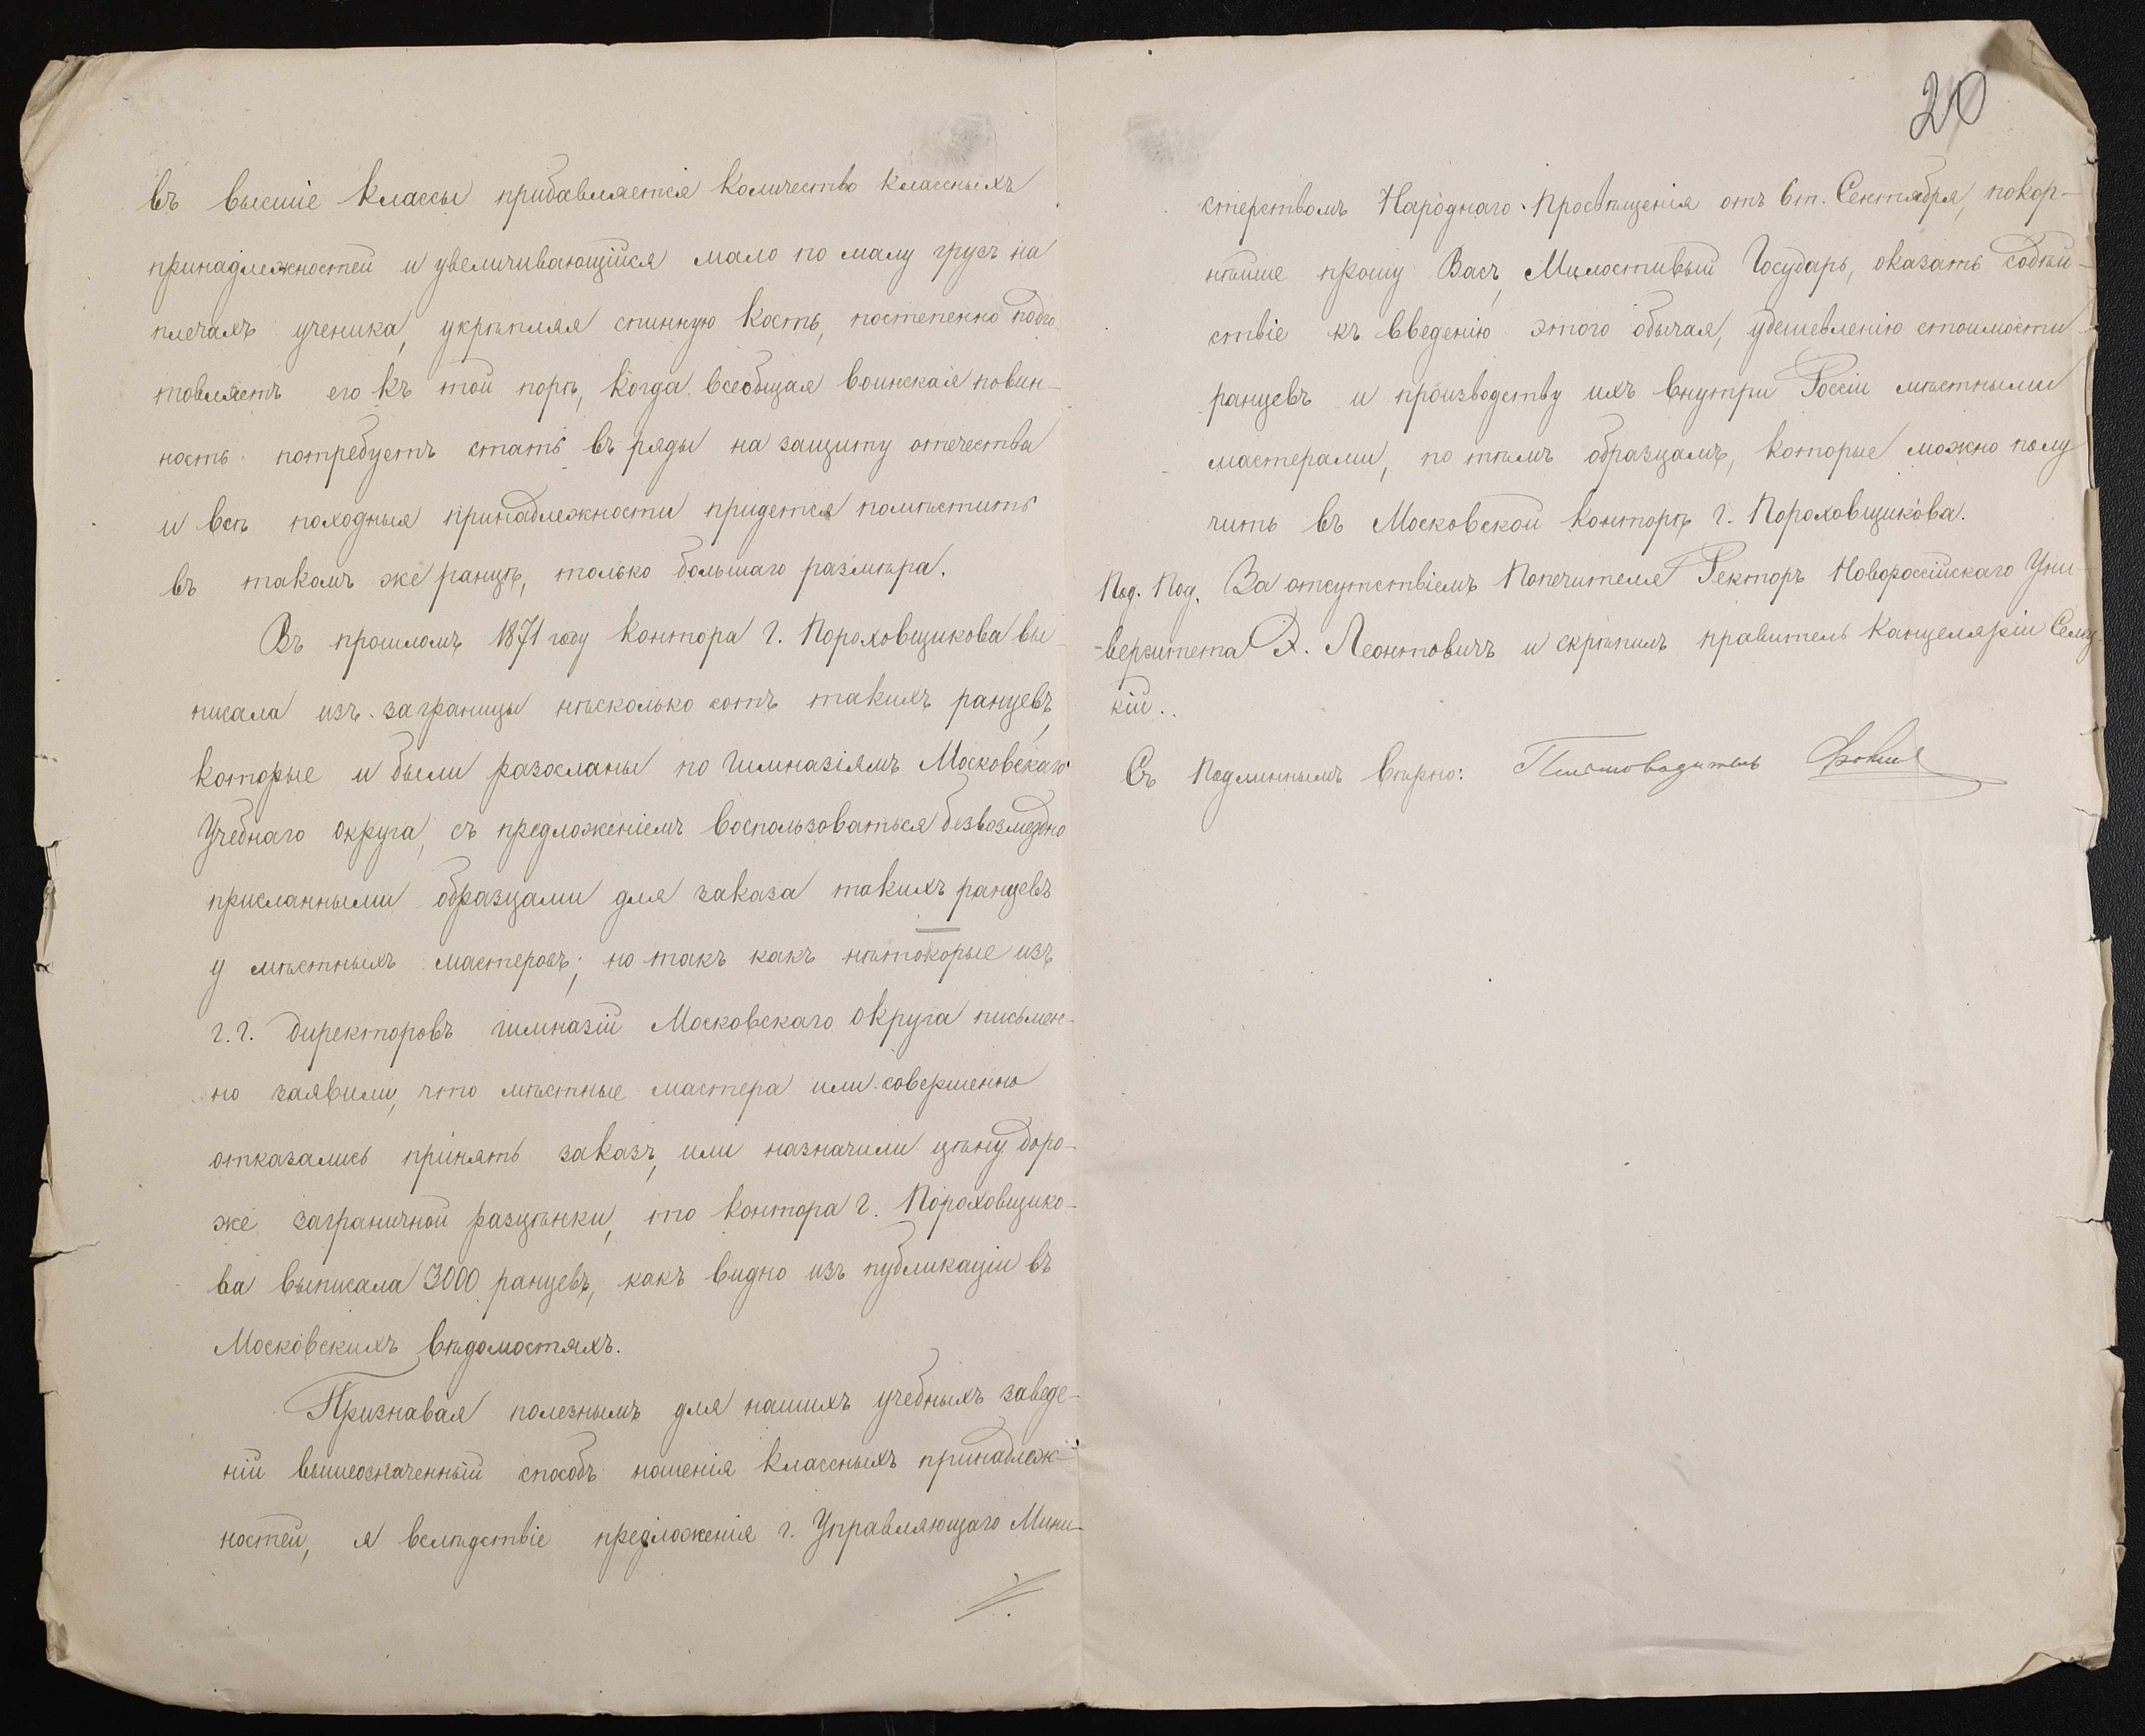 въ высшіе классы прибавляется количество классныхъ
принадлежностей и увеличивающійся мало по малу грузъ на
плечахъ ученика, укрѣпляя спинную кость, постепенно подго
товляетъ его къ той порѣ, когда всеобщая воинская повин-
ность потребуетъ стать въ ряды на защиту отечества
и всѣ походныя принадлежности придется помѣстить
въ такомъ же ранцѣ, только большаго размѣра.
Въ прошломъ 1871 году контора г. Пороховщикова вы
писала изъ заграницы нѣсколько сотъ такихъ ранцевъ,
которые и были разосланы по гимназіямъ Московскаго
Учебнаго округа, съ предложеніемъ воспользоваться безвозмездно
присланными образцами для заказа такихъ ранцевъ
у мѣстныхъ мастеровъ; но такъ какъ нѣтокорые изъ
г.г. директоровъ гимназій Московскаго округа письмен-
но заявили, что мѣстные мастера или совершенно
отказались принять заказъ, или назначили цѣну доро-
же заграничной разцѣнки, то контора г. Пороховщико-
ва выписала 3000 ранцевъ, какъ видно изъ публикаціи въ
Московскихъ вѣдомостяхъ.
Признавая полезнымъ для нашихъ учебныхъ заведе-
ній вышеозначенный способъ ношенія классныхъ принадлеж-
ностей, я вслѣдствіе предложенія г. Управляющаго Мини-
20
стерствомъ Народнаго Просвѣщенія отъ 6 т. Сентября, покор-
нѣйше прошу Васъ, Милостивый Государь, оказать содѣй-
ствіе къ введенію этого обычая, удешевленію стоимости
ранцевъ и производству ихъ внутри Россіи мѣстными
мастерами, по тѣмъ образцамъ, которые можно полу
чить въ Московской конторѣ г. Пороховщикова.
Под. Под. За отсутствіемъ Попечителя Ректоръ Новороссійскаго Уни-
-верситета Ѳ. Леонтовичъ и скрѣпилъ правитель канцеляріи
кій.
Съ Подлиннымъ вѣрно: Письмоводитель